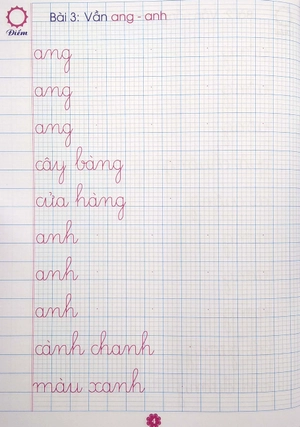 Bài 3: Vần ang - anh
Điểm
ang
ang
ang
cây bàng
cửa hàng
anh
anh
anh
cành chanh
màu xanh
4